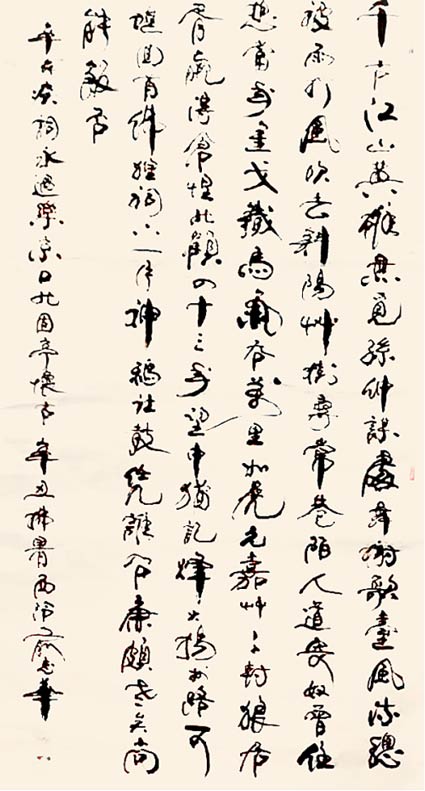 千古江山英雄無覓孫仲謀處舞榭歌臺風流總
被雨打風吹去斜陽艸樹尋常巷陌人道寄奴曾住
想當年金戈鐵馬氣吞萬里如虎元嘉艸々封狼居
胥贏得倉惶北顧四十三年望中猶記烽火揚州路可
堪回首佛狸祠下一片神鴉社鼓凭誰問廉頗老矣尚
能飯否
辛弃疾詞永遇樂京口北固亭懷古 辛丑